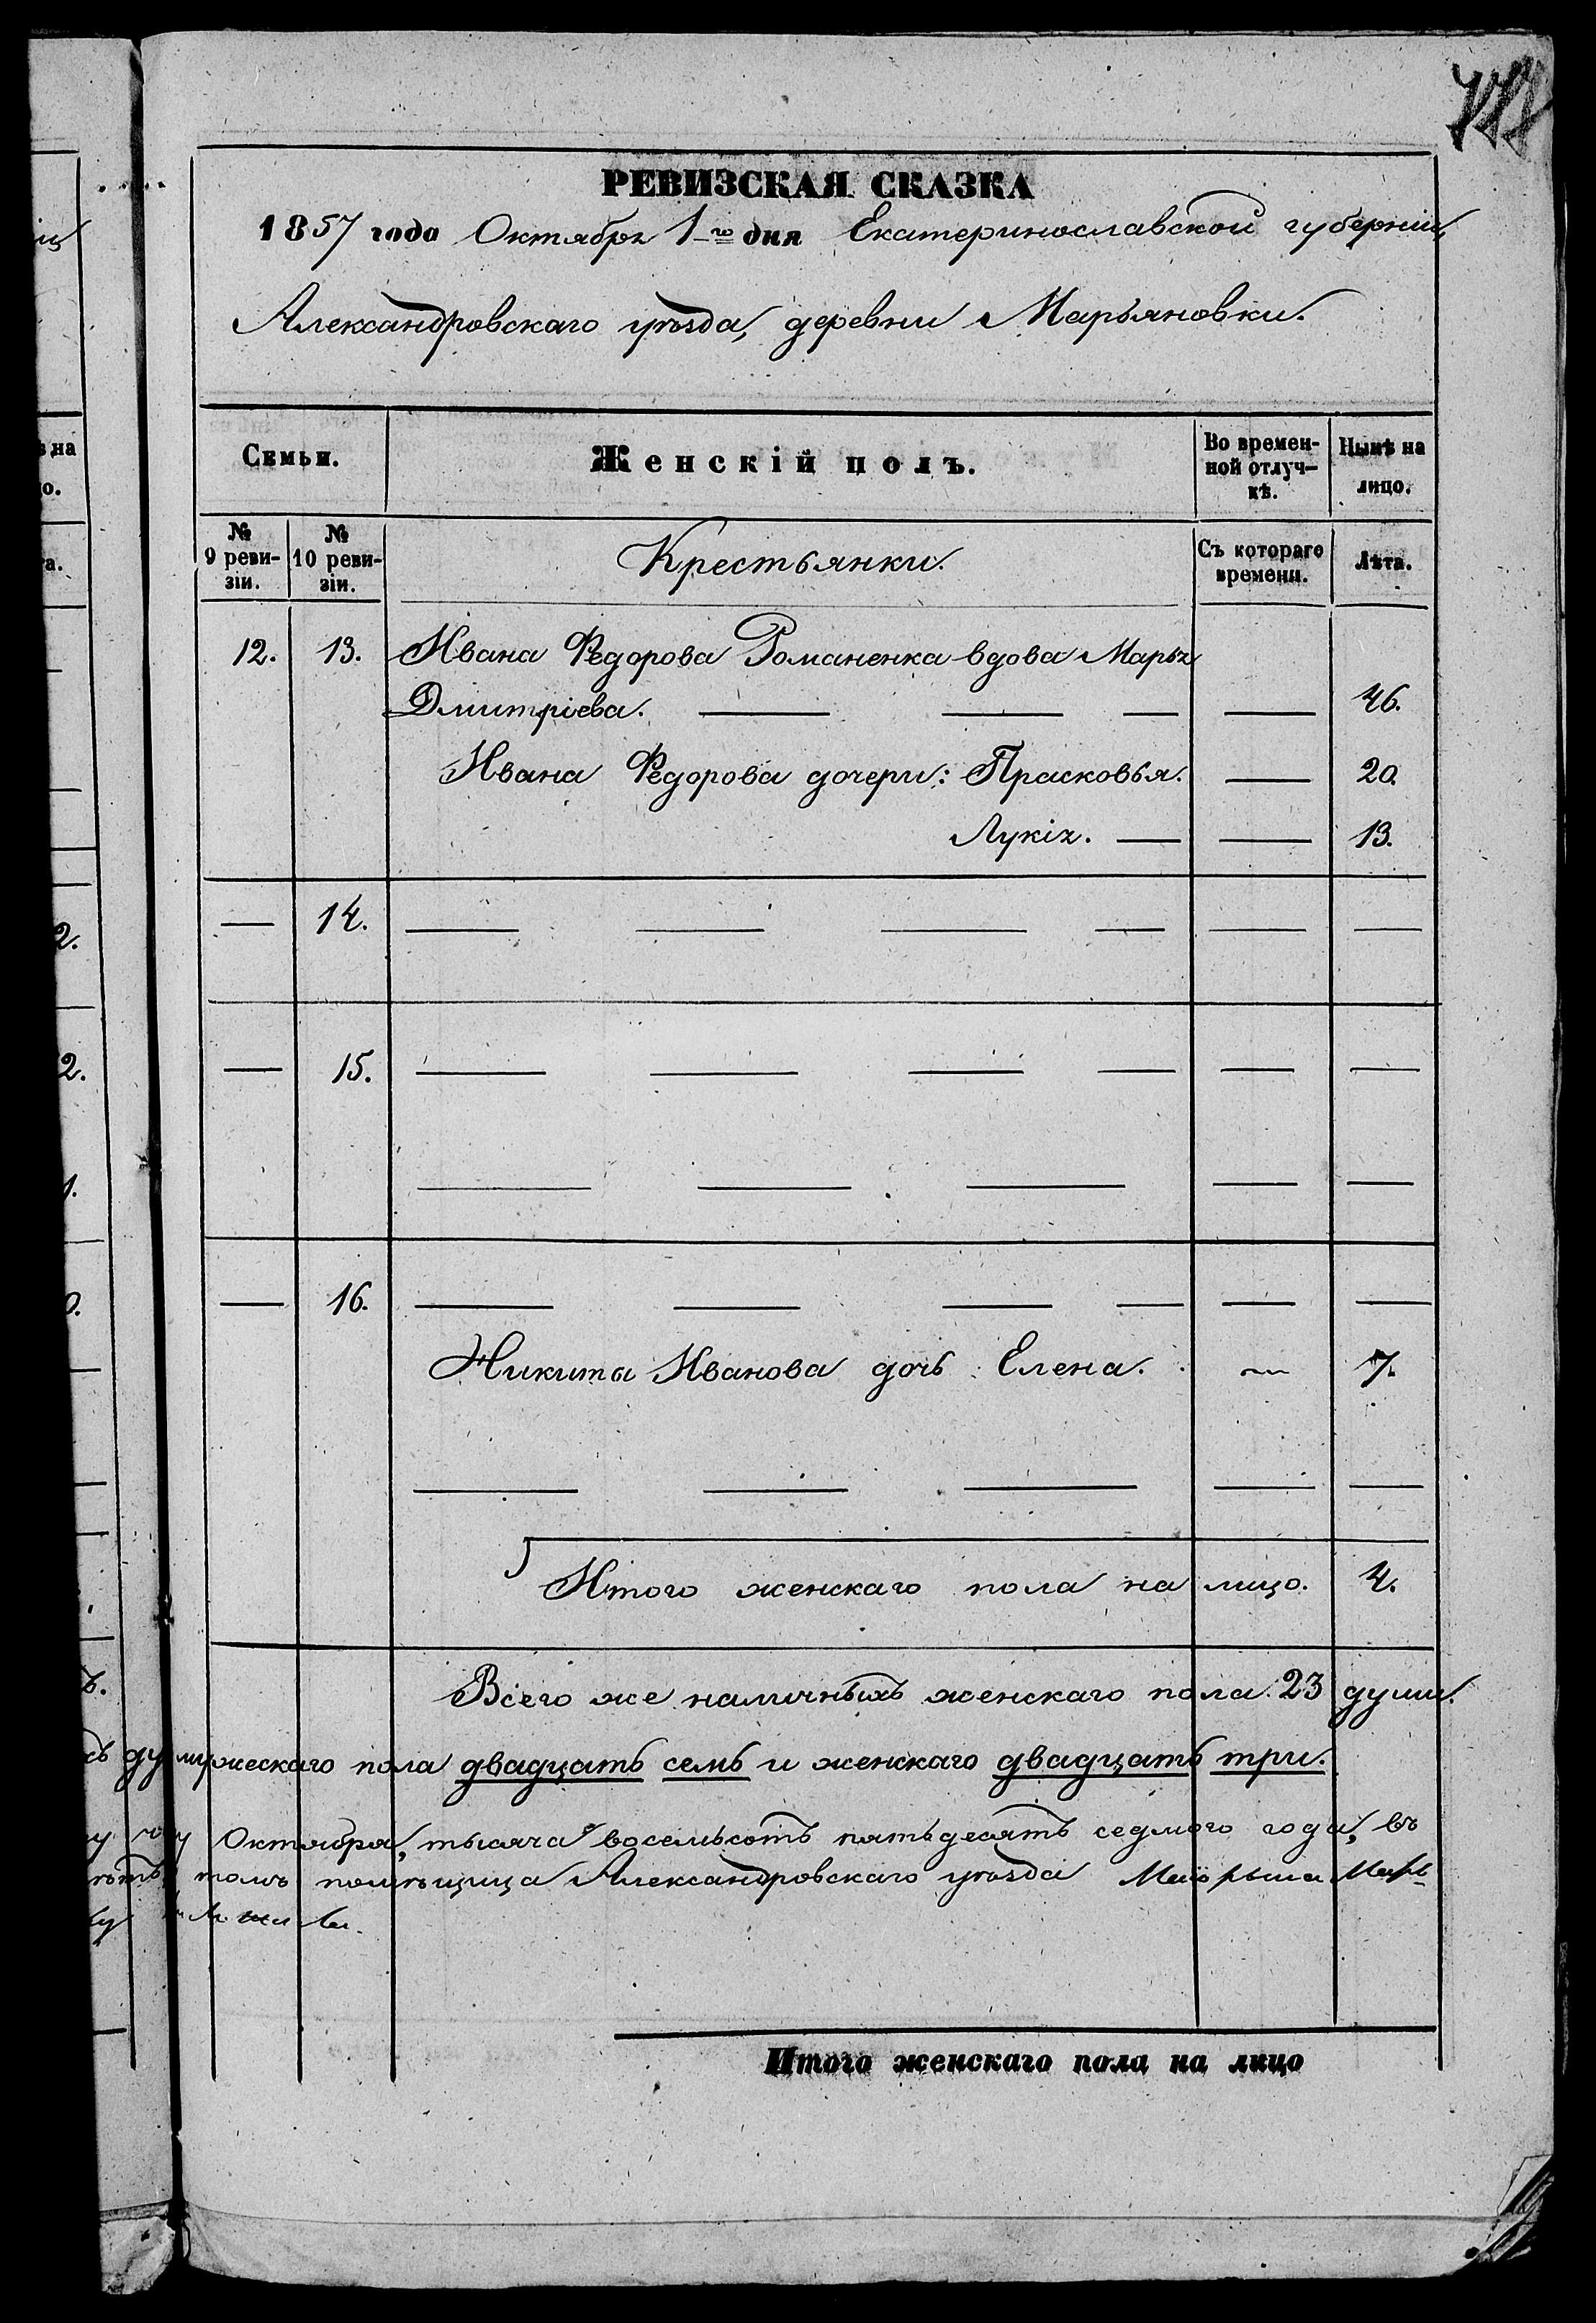 РЕВИЗСКАЯ СКАЗКА
1857 года Октября 1-го дня Екатеринославской губерніи,
Александровскаго уѣзда, деревни Марьяновки.
Семьи.
Женскій полъ.
Во времен-
ной отлуч-
кѣ.
Нынѣ на
лицо.
№
9 реви-
зіи.
№
10 реви-
зіи.
Крестьянки.
Съ котораго
времени.
Лѣта.
12. 13. Ивана Федорова Романенка вдова Марья
Дмитріева. — — — — 46.
Ивана Федорова дочери: Прасковья. — 20.
Лукія. — — 13.
— 14. — — — — — —
— 15. — — — — — —
— — — — —
— 16. — — — — — —
Никиты Иванова дочь Елена. — 7.
— — — — —
Итого женскаго пола на лицо. 4.
Всего же наличныхъ женскаго пола 23 души.
мужескаго пола двадцать семь и женскаго двадцать три.
Октября, тысяча восемьсотъ пятьдесятъ седьмого года, въ
томъ помѣщица Александровскаго уѣзда
Итого женскаго пола на лицо